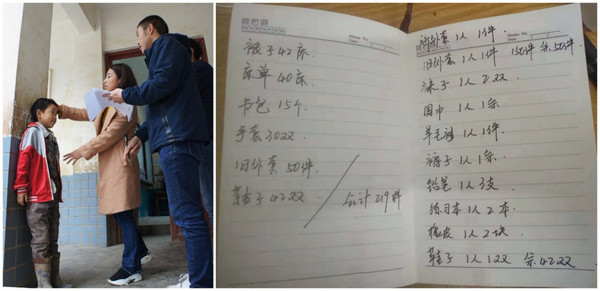 被子42床
床单40床.
卡包 15个.
手套30双
旧外套 50件.
鞋子42双 合计219件
Memo No.
Date
新外套 1人 1件
旧外套 1人 1件 150件 余50件.
袜子 1人2双.
围巾 1人1条
羊毛 1人1件.
裤子 1人1条
铅笔 1人3支
练习本 1人2本.
橡皮 1人2块.
鞋子 1人1双 余42双